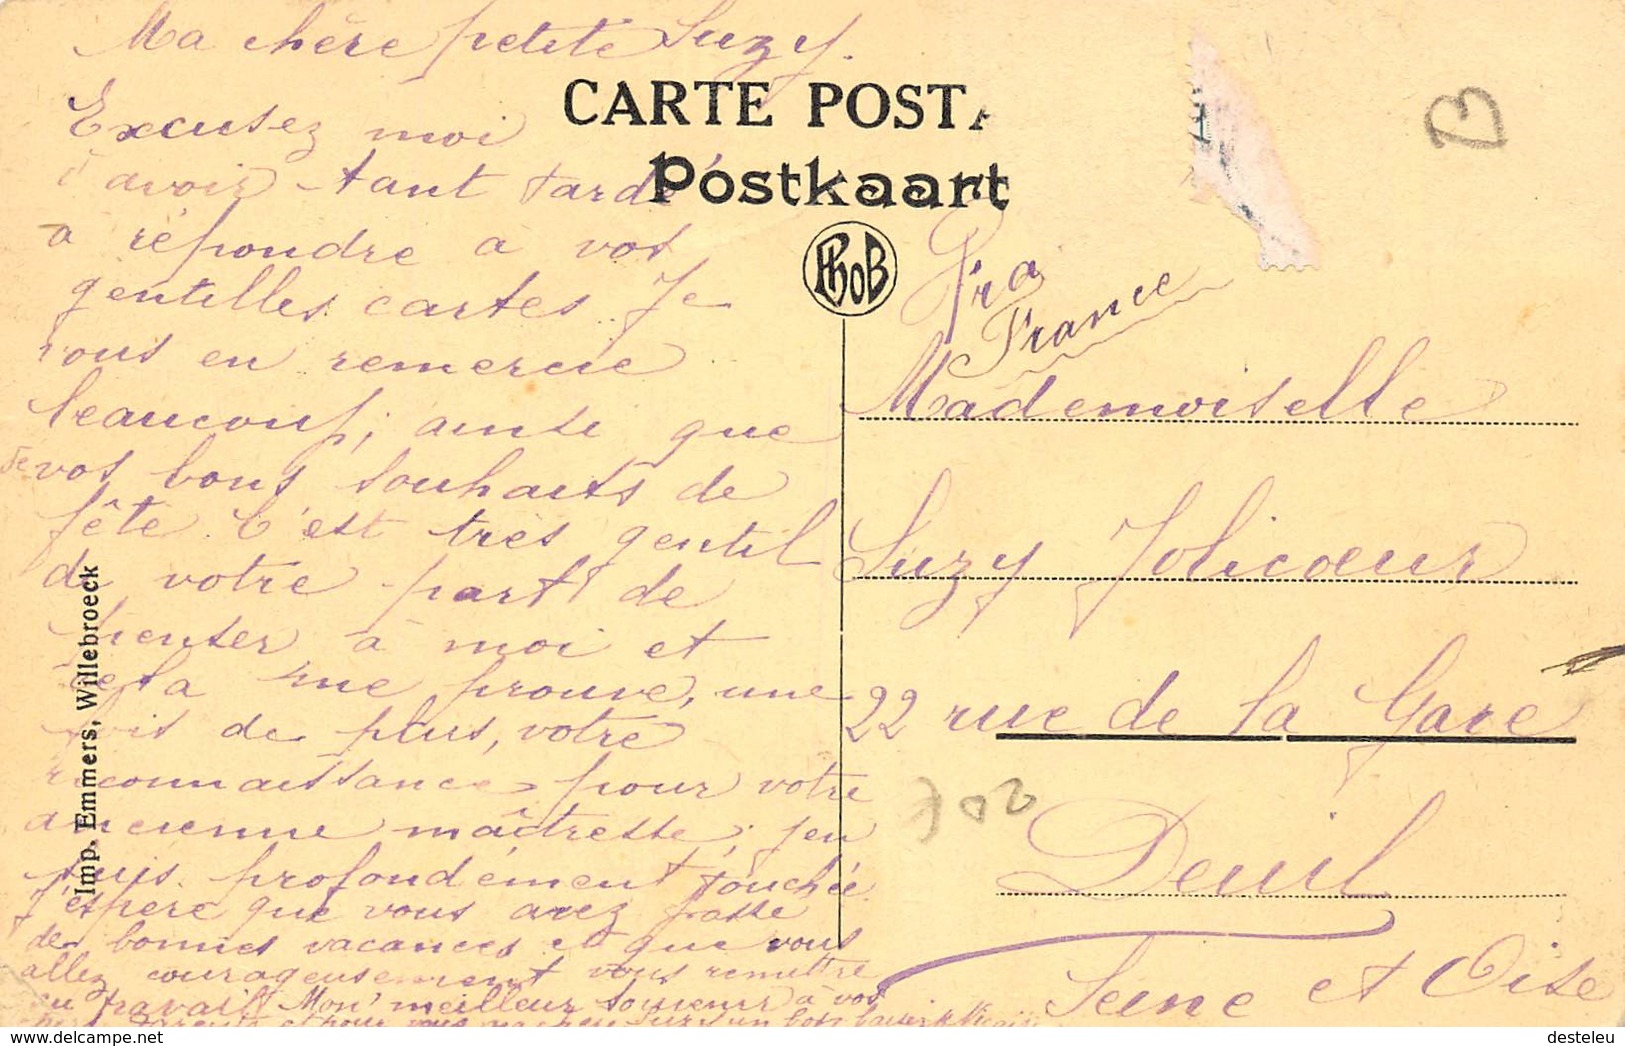 Ma chère petite Suzy.
CARTE POSTA
Postkaart
PhoB
Excusez moi
d'avoir tant tardé
a répondre à vos
gentilles cartes. Je
vous en remercie
beaucoup, ainsi que
de vos bons souhaits de
fête. C'est très gentil
de votre part de
penser à moi et
cela me prouve, une
fois de plus, votre
reconnaissance pour votre
ancienne maîtresse; j'en
suis profondément touchée
J'espère que vous avez passé
de bonnes vacances et que vous
allez courageusement vous remettre
au travail. Mon meilleur souvenir à vos
parents et pour vous ma chère Suzy un bon baiser
Imp. Emmers, Willebroeck
France
Mademoiselle
Suzy Jolicoeur
22 rue de la Gare
Deuil
Seine et Oise
B
702
delcampe.net
desteleu